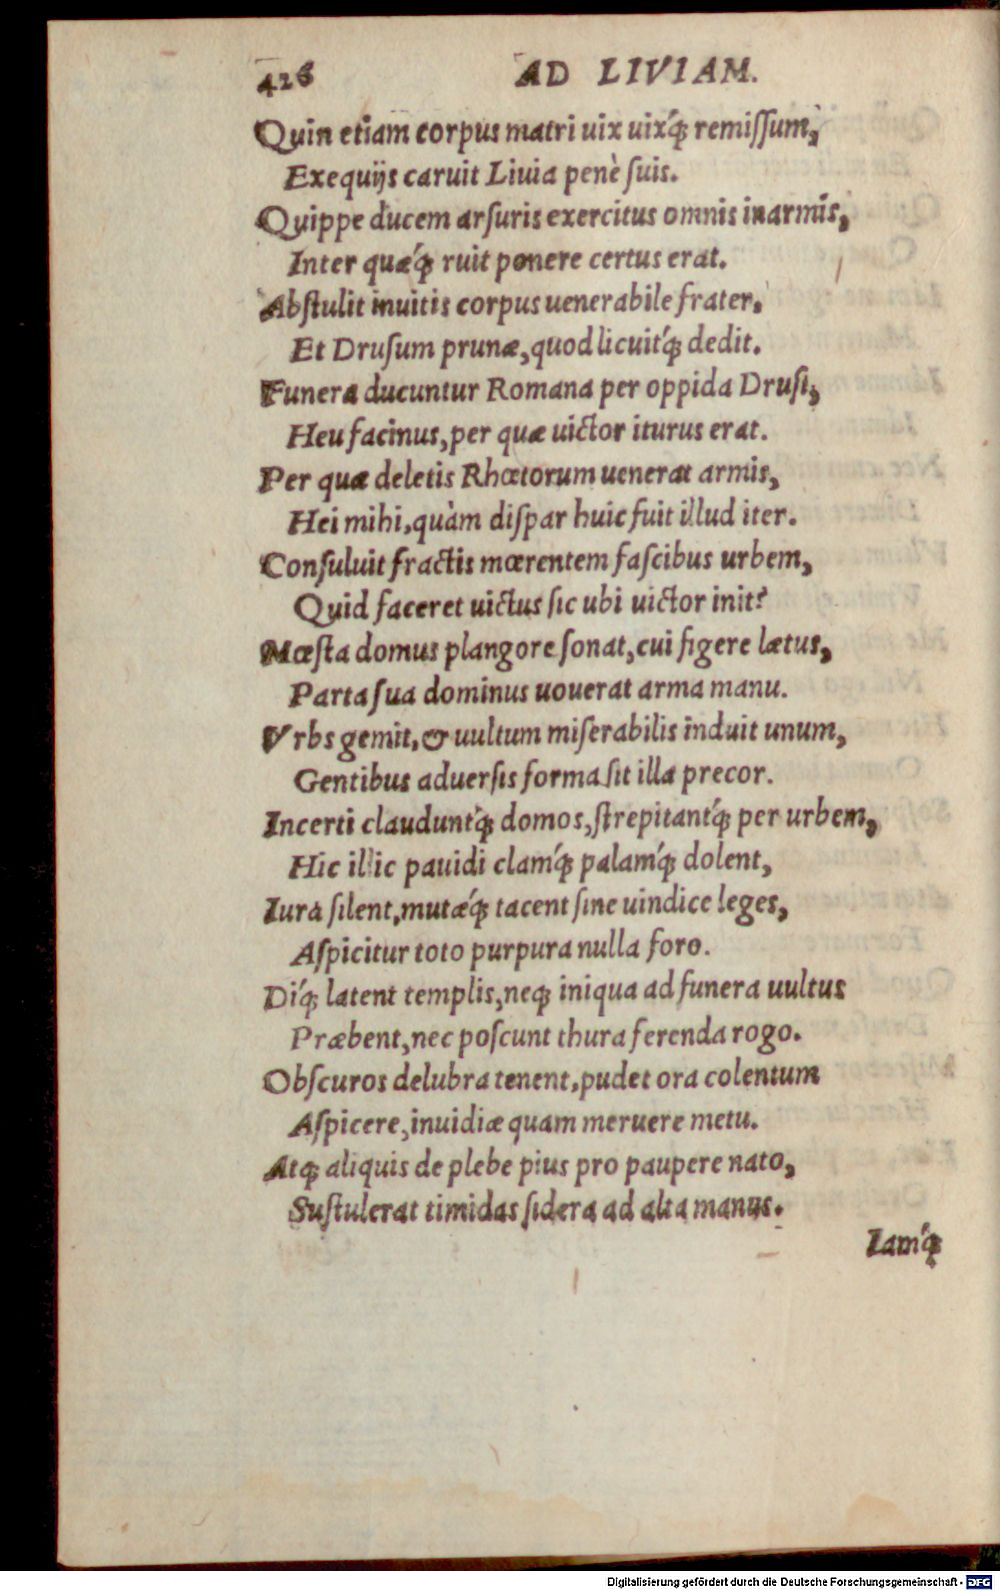 426 AD LIVIAM.
Quin etiam corpus matri uix uixq́; remiſſum,
Exequijs caruit Liuia penè ſuis.
Quippe ducem arſuris exercitus omnis in armis,
Inter quæq́; ruit ponere certus erat.
Abſtulit inuitis corpus uenerabile frater,
Et Druſum prunæ, quod licuitq́; dedit.
Funera ducuntur Romana per oppida Druſi,
Heu facinus, per quæ uictor iturus erat.
Per quæ deletis Rhœtorum uenerat armis,
Hei mihi, quàm diſpar huic fuit illud iter.
Conſuluit fractis mœrentem faſcibus urbem,
Quid faceret uictus ſic ubi uictor init?
Mœſta domus plangore ſonat, cui figere lætus,
Parta ſua dominus uouerat arma manu.
Vrbs gemit, & uultum miſerabilis induit unum,
Gentibus aduerſis forma ſit illa precor.
Incerti clauduntq́; domos, ſtrepitantq́; per urbem,
Hic illic pauidi clamq́; palamq́; dolent,
Iura ſilent, mutæq́; tacent ſine uindice leges,
Aſpicitur toto purpura nulla foro.
Diq́; latent templis, neq; iniqua ad funera uultus
Præbent, nec poſcunt thura ferenda rogo.
Obſcuros delubra tenent, pudet ora colentum
Aſpicere, inuidiæ quam meruere metu.
Atq; aliquis de plebe pius pro paupere nato,
Suſtulerat timidas ſidera ad alta manus.
Iamq́;
Digitalisierung gefördert durch die Deutsche Forschungsgemeinschaft - DFG